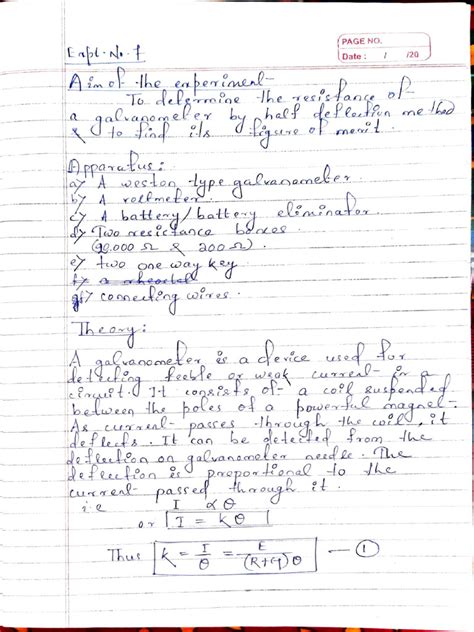 PAGE NO.
Date : / /20
Expt. No. 7
Aim of the experiment-
To determine the resistance of
a galvanometer by half deflection method
& to find its figure of merit.
Apparatus :
a) A weston type galvanometer.
b) A voltmeter.
c) A battery/battery eliminator.
d) Two resistance boxes.
(10,000 Ω & 200 Ω).
e) two one way key
f) a rheostat
g) connecting wires.
Theory :
A galvanometer is a device used for
detecting feeble or weak current in a
circuit. It consists of a coil suspended
between the poles of a powerful magnet.
As current passes through the coil, it
deflects. It can be detected from the
deflection on galvanometer needle. The
deflection is proportional to the
current passed through it.
i.e I α θ
or I = kθ
Thus k = I/θ = E/(R+G)θ — ①